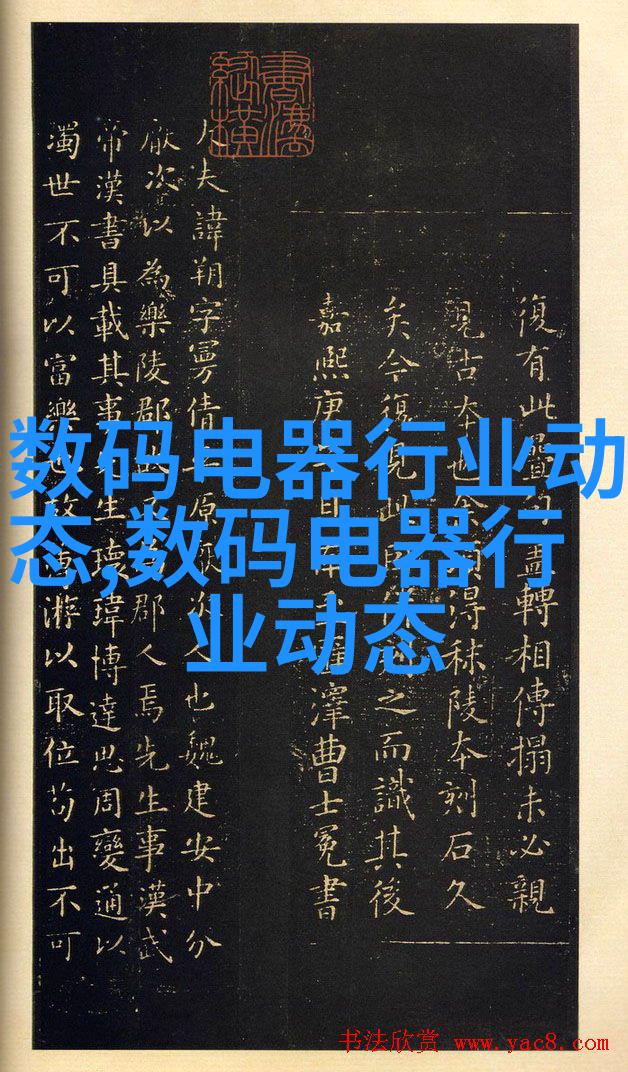 数码电器行业动
态,数码电器行
业动态
復有此 盡轉相傳搨未必親
見古本也今 得秣陵本刻石久
矣今復見此 之而識其後
嘉熙庚 澤曹士冕書
大夫諱朔字曼倩 原 次人也魏建安中分
厭次以為樂陵郡 郡人焉先生事漢武
帝漢書具載其事 生瓌瑋博達思周變通以
濁世不可以富樂 故 遊以取位苟出不可
书法欣赏 www.yac8.com